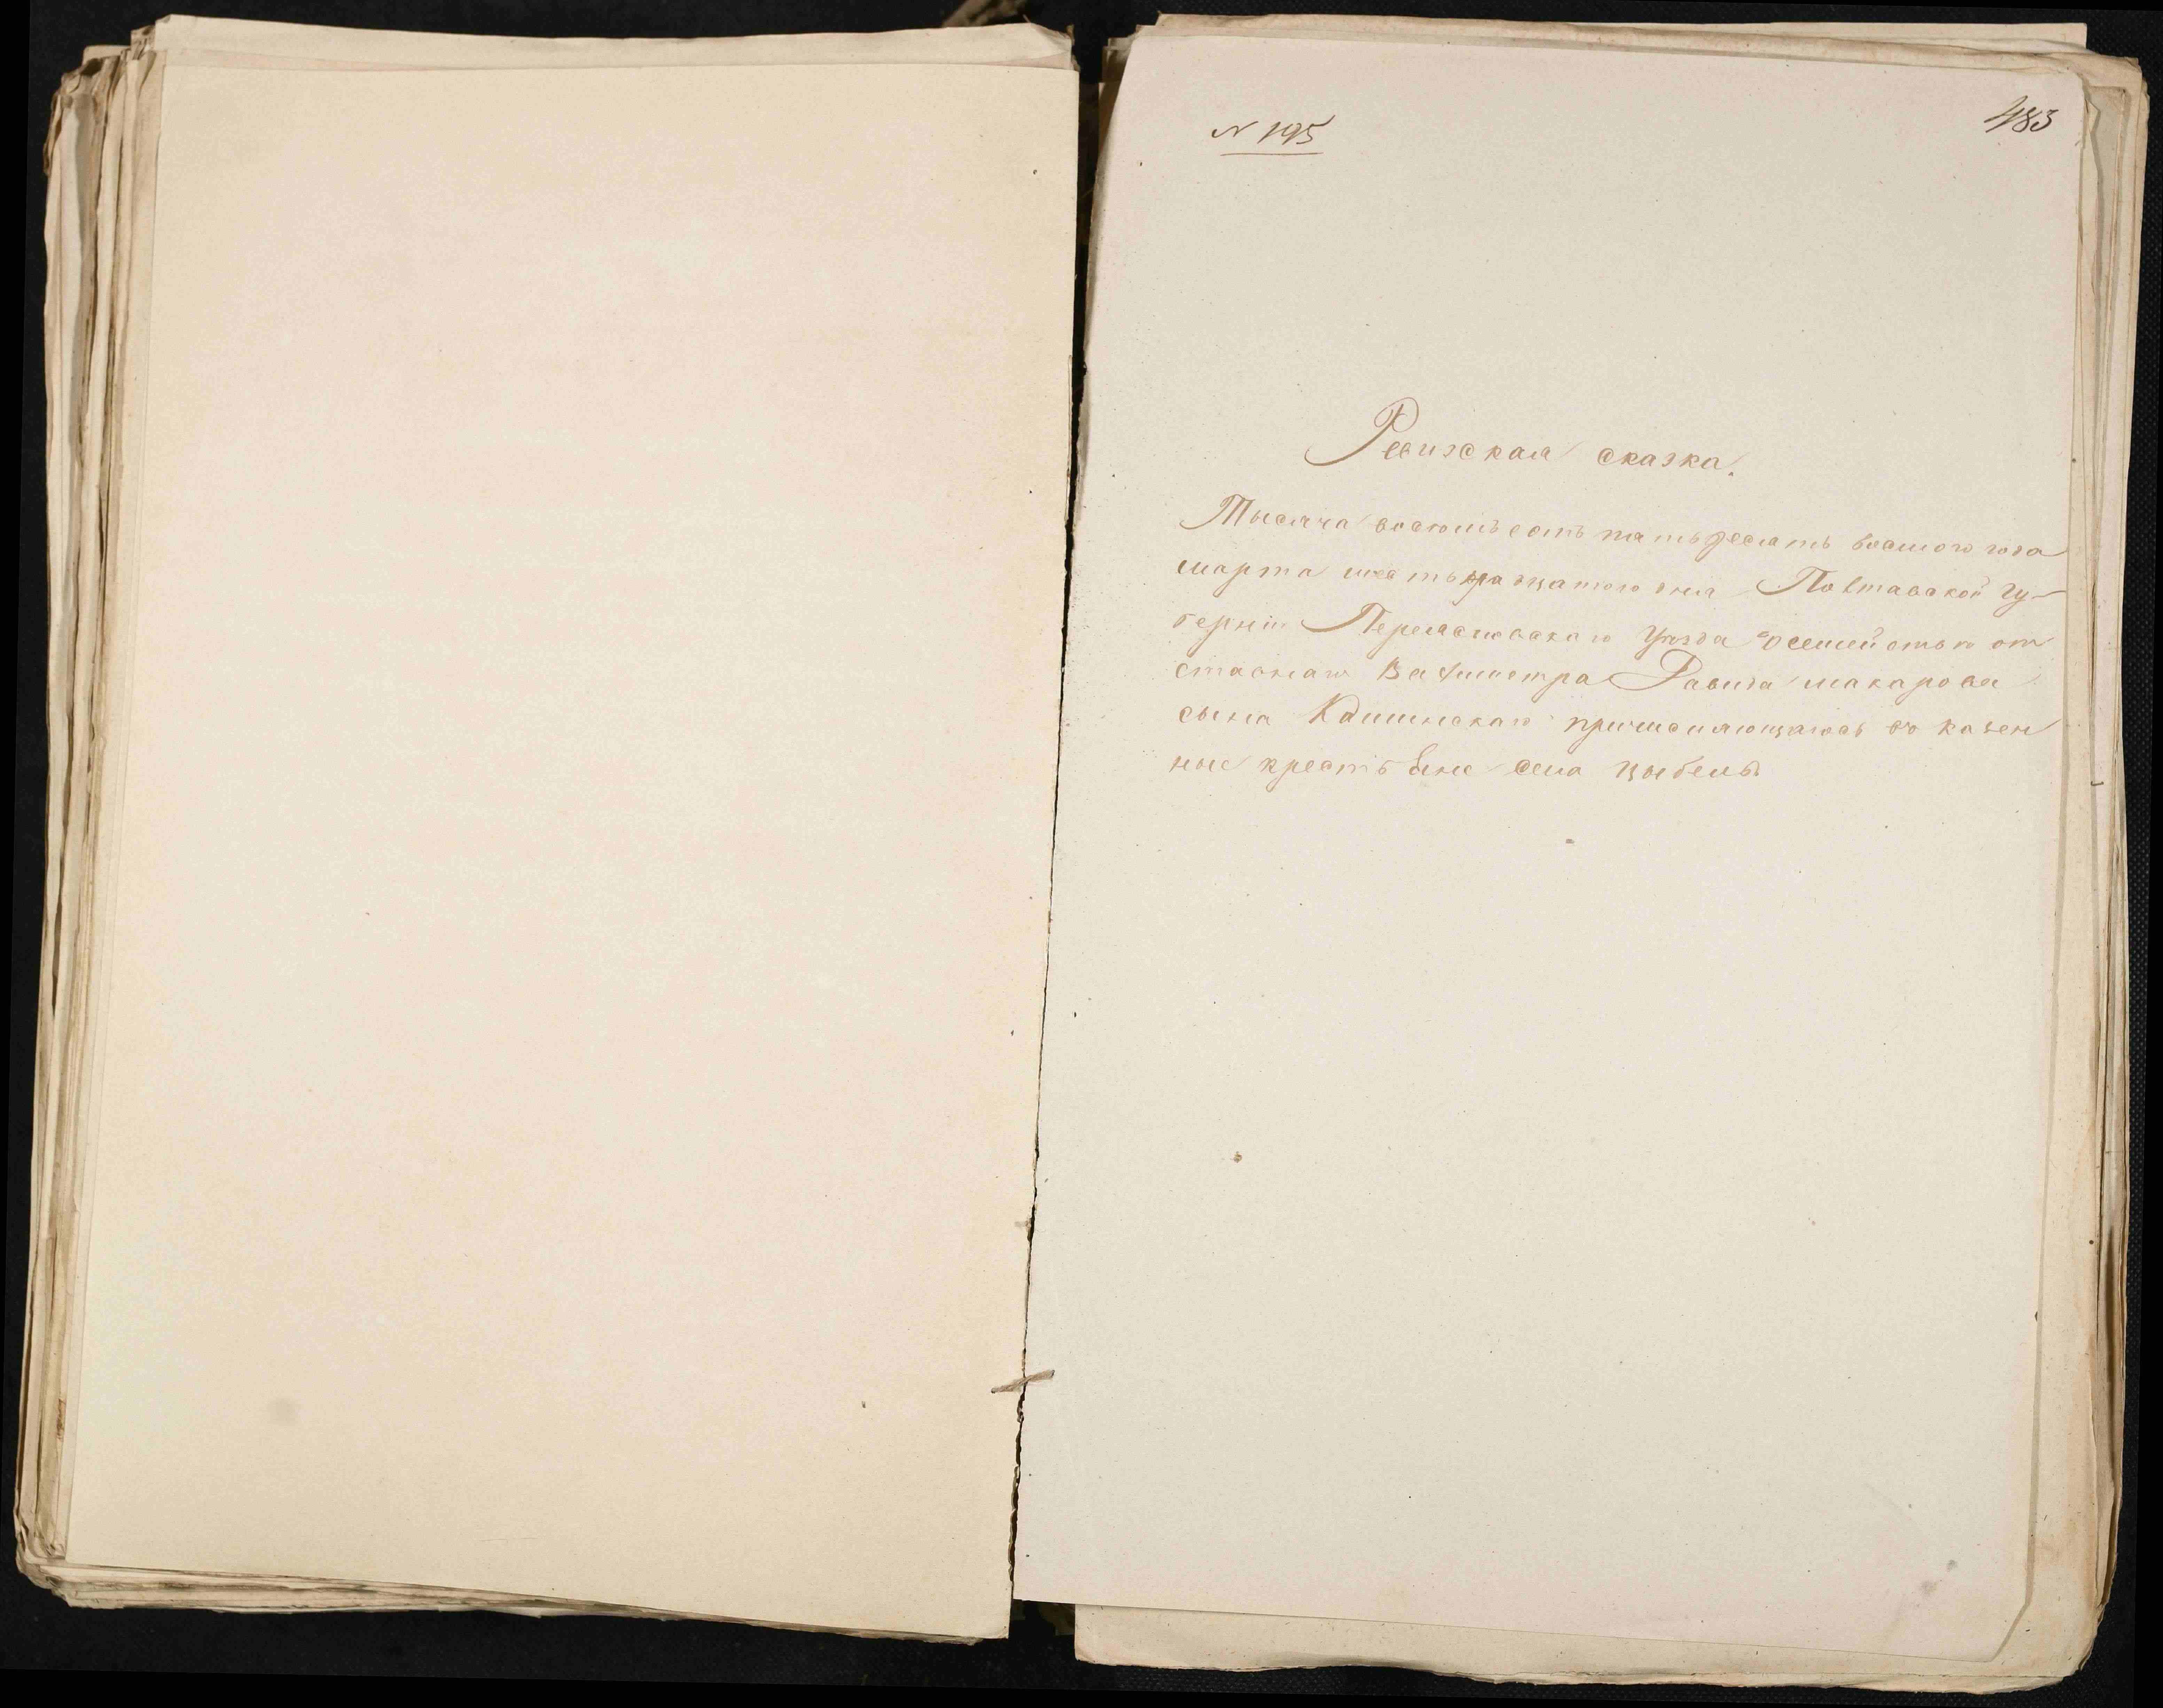 N 195
483
Ревизская сказка.
Тысяча восемьсотъ пятьдесятъ восмого года
марта шестьнадцатого дня Полтавской гу-
берніи Переяславского Уезда о семействе от
ставнаго Вахмистра Давида макарова
сына причисляющагось въ казен
ные крестьяне села Цыбель